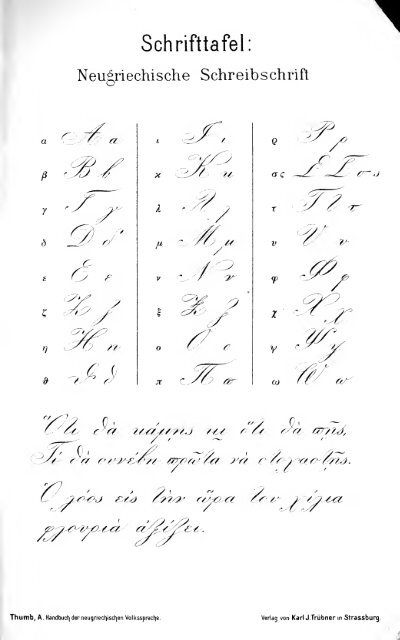 Schrifttafel:
Neugriechische Schreibschrift
α Α α ι Ι ι ϱ Ρ ρ
β Β β κ Κ κ σς Σ Σ σ ς
γ Γ γ λ Λ λ τ Τ τ τ
δ Δ δ μ Μ μ υ Υ υ
ε Ε ε ν Ν ν φ Φ φ
ζ Ζ ζ ξ Ξ ξ χ Χ χ
η Η η ο Ο ο ψ Ψ ψ
ϑ Θ θ π Π π ω Ω ω
Ὅτι θὰ κάμῃς κι ὅτι θὰ πῇς,
Τί θὰ συνέβη πρῶτα νὰ στοχαστῇς.
Ὁ λόος εἰς τὴν ὥρα του χίλια
φλουριὰ ἀξίζει.
Thumb, A. Handbuch der neugriechischen Volkssprache. Verlag von Karl J. Trübner in Strassburg.